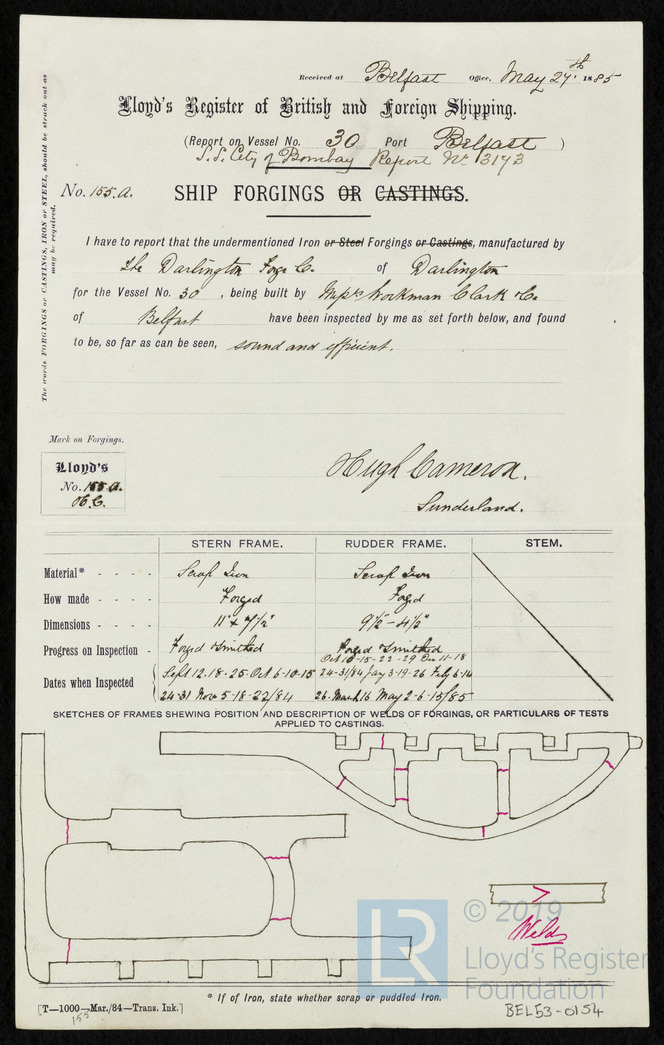 Received at Belfast Office, May 27th 1885
Lloyd's Register of British and Foreign Shipping.
(Report on Vessel No. 30 Port Belfast )
S.S. City of Bombay Report No. 3173
No. 155.A. SHIP FORGINGS OR CASTINGS.
The words FORGINGS or CASTINGS, IRON or STEEL, should be struck out as may be required.
I have to report that the undermentioned Iron or Steel Forgings or Castings, manufactured by
the Darlington Forge Co. of Darlington
for the Vessel No. 30 , being built by Messrs Workman Clark & Co.
of Belfast have been inspected by me as set forth below, and found
to be, so far as can be seen, sound and efficient.
Mark on Forgings.
Lloyd's
No. 155.A.
H.C.
Hugh Cameron.
Sunderland.
STERN FRAME. RUDDER FRAME. STEM.
Material* - - - - Scrap Iron Scrap Iron
How made - - - - Forged Forged
Dimensions - - - - 11" x 7½" 9½" - 4½"
Progress on Inspection - Forged & united Forged & united
Dates when Inspected
Sept 12.18.25. Oct 6.10.15
24-31 Nov 5-18-22/84
Oct 10-15-22-29 Dec 11-18
24-31/84 Jany 3-19-26 Feby 6-14
26. March 16 May 2-6-15/85
SKETCHES OF FRAMES SHEWING POSITION AND DESCRIPTION OF WELDS OF FORGINGS, OR PARTICULARS OF TESTS
APPLIED TO CASTINGS.
Welds
© 2019
LR
Lloyd's Register
Foundation
* If of Iron, state whether scrap or puddled Iron.
[T—1000—Mar./84—Trans. Ink.]
155
BEL53-0154